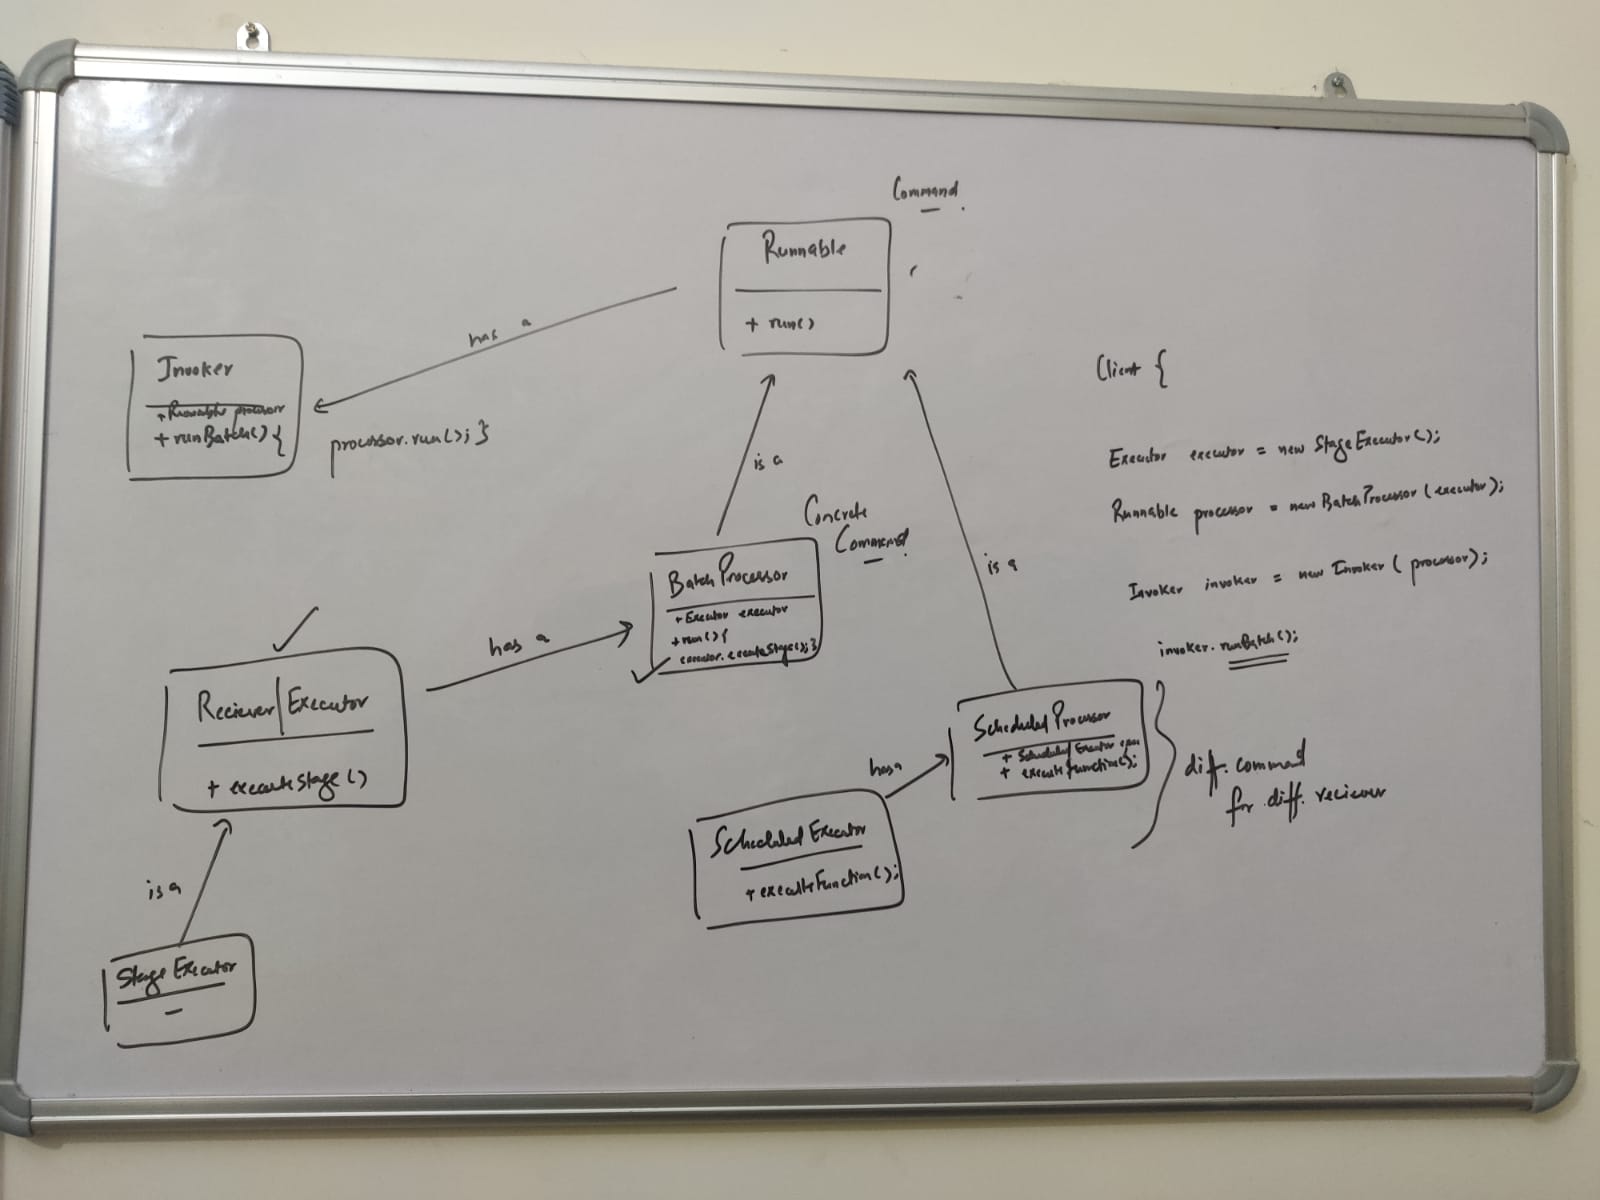 Command.
Runnable
+ run()
has a
Invoker
+ Runnable processor
+ runBatch() {
processor.run(); }
is a
is a
Concrete
Command.
BatchProcessor
+ Executor executor
+ run() {
executor.executeStage(); }
has a
Reciever | Executor
+ executeStage()
is a
Stage Executor
-
Scheduled Processor
+ Scheduled Executor
+ executeFunction();
has a
Scheduled Executor
+ executeFunction();
Client {
Executor executor = new StageExecutor();
Runnable processor = new BatchProcessor(executor);
Invoker invoker = new Invoker( processor);
invoker.runBatch();
diff. command
for diff. reciever